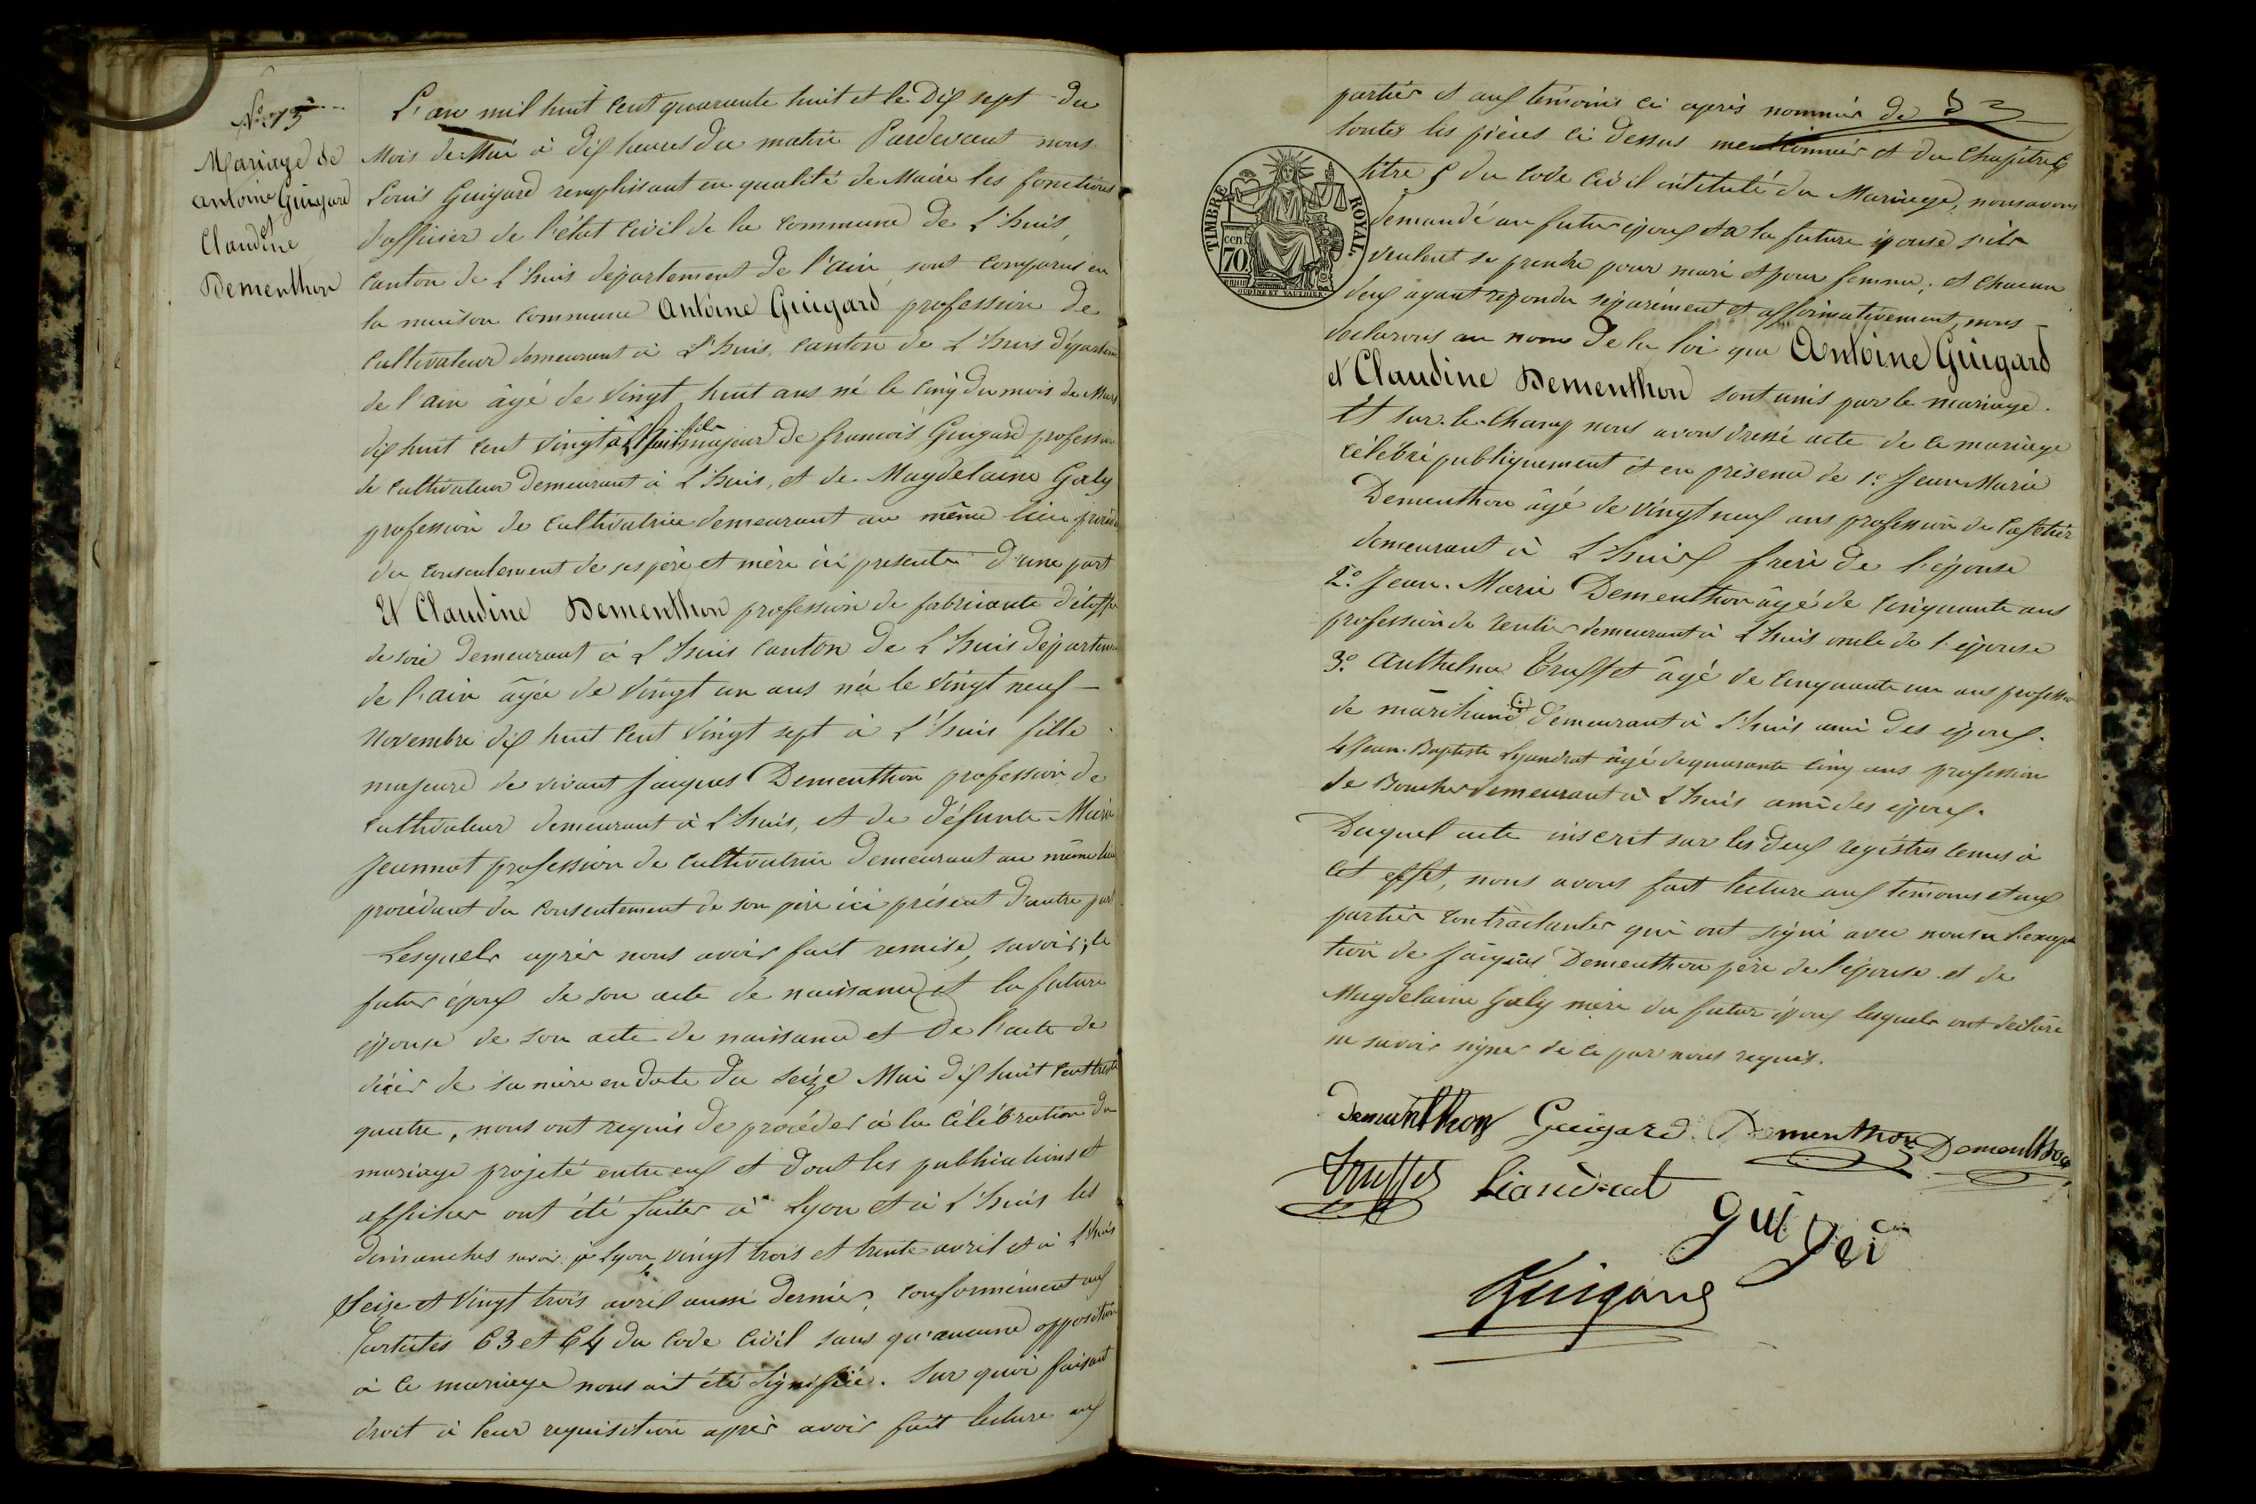 N.º 13
Mariage de
antoine Guigard
et
Claudine
Dementhon
L'an mil huit cent quarante huit et le dix sept du
mois de Mai à dix heures du matin Pardevant nous
Louis Guigard remplissant en qualité de Maire les fonctions
d'officier de l'état civil de la commune de L'huis,
canton de L'huis département de l'ain, sont comparus en
la maison commune Antoine Guigard, profession de
cultivateur demeurant à L'huis, canton de L'huis départem
de l'ain âgé de vingt huit ans né le cinq du mois de Mars
dix huit cent vingt à L'huis fils majeur de françois Guigard profession
de cultivateur demeurant à L'huis, et de Magdelaine Galy
profession de cultivatrice demeurant au même lieu
du consentement de ses père et mère ici presents d'une part
Et Claudine Dementhon profession de fabricante d'étoffe
de soie demeurant à L'huis canton de L'huis départem
de l'ain âgée de vingt un ans née le vingt neuf
novembre dix huit cent vingt sept à L'huis fille
majeure de vivant Jacques Dementhon profession de
cultivateur demeurant à L'huis, et de défunte Marie
Jeannot profession de cultivatrice demeurant au même lieu
procédant du consentement de son père ici présent d'autre part
Lesquels après nous avoir fait remise, savoir; le
futur époux de son acte de naissance et la future
épouse de son acte de naissance et de l'acte de
décès de sa mère en date du seize Mai dix huit cent trente
quatre, nous ont requis de procéder à la célébration du
mariage projeté entre eux et dont les publications et
affiches ont été faites à Lyon et à L'huis les
dimanches savoir à Lyon vingt trois et trente avril et à L'huis
seize et vingt trois avril aussi dernier, conformément aux
articles 63 et 64 du code civil sans qu'aucune opposition
à ce mariage nous ait été signifiée. Sur quoi faisant
droit à leur requisition après avoir fait lecture aux
parties et aux témoins ci après nommés de
toutes les pièces ci dessus mentionnées et du chapitre 6
titre 5 du code civil intitulé du Mariage, nous avons
demandé au futur époux et à la future épouse s'ils
veulent se prendre pour mari et pour femme; et chacun
deux ayant répondu séparément et affirmativement, nous
déclarons au nom de la loi que Antoine Guigard
et Claudine Dementhon sont unis par le mariage.
Et sur-le-champ nous avons dressé acte de ce mariage
célébré publiquement et en présence de 1.º Jean Marie
Dementhon âgé de vingt neuf ans profession de cafetier
demeurant à L'huis frère de l'épouse
2.º Jean-Marie Dementhon âgé de cinquante ans
profession de rentier demeurant à L'huis oncle de l'épouse
3.º Anthelme Truffet âgé de cinquante un ans profession
de marchand demeurant à L'huis ami des époux.
4 Jean-Baptiste Lyandrat âgé de quarante cinq ans profession
de Boucher demeurant à L'huis ami des époux.
Duquel acte inscrit sur les deux registres tenus à
cet effet, nous avons fait lecture aux temoins et aux
parties contractantes qui ont signé avec nous à l'excep
tion de Jacques Dementhon père de l'épouse et de
Magdelaine Galy mère du futur époux lesquels ont déclaré
ne savoir signer de ce par nous requis.
TIMBRE ROYAL.
cen. 70.
Dementhon Guigard Dementhon Dementhon
Truffet Liandrat
Guigard